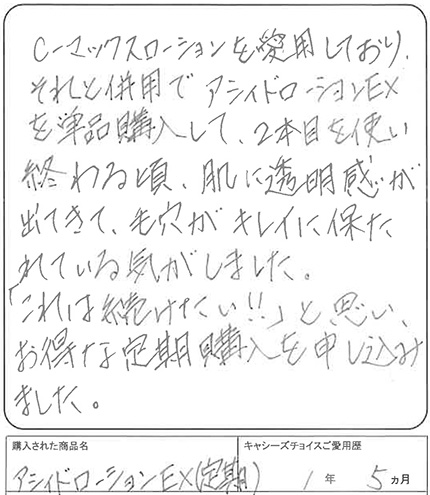 Cーマックスローションを愛用しており、
それと併用でアシィドローションEX
を単品購入して、2本目を使い
終わる頃、肌に透明感が
出てきて、毛穴がキレイに保た
れている気がしました。
「これは続けたい!!」と思い、
お得な定期購入を申し込み
ました。
購入された商品名
キャシーズチョイスご愛用歴
アシィドローションEX(定期)
1年5ヵ月